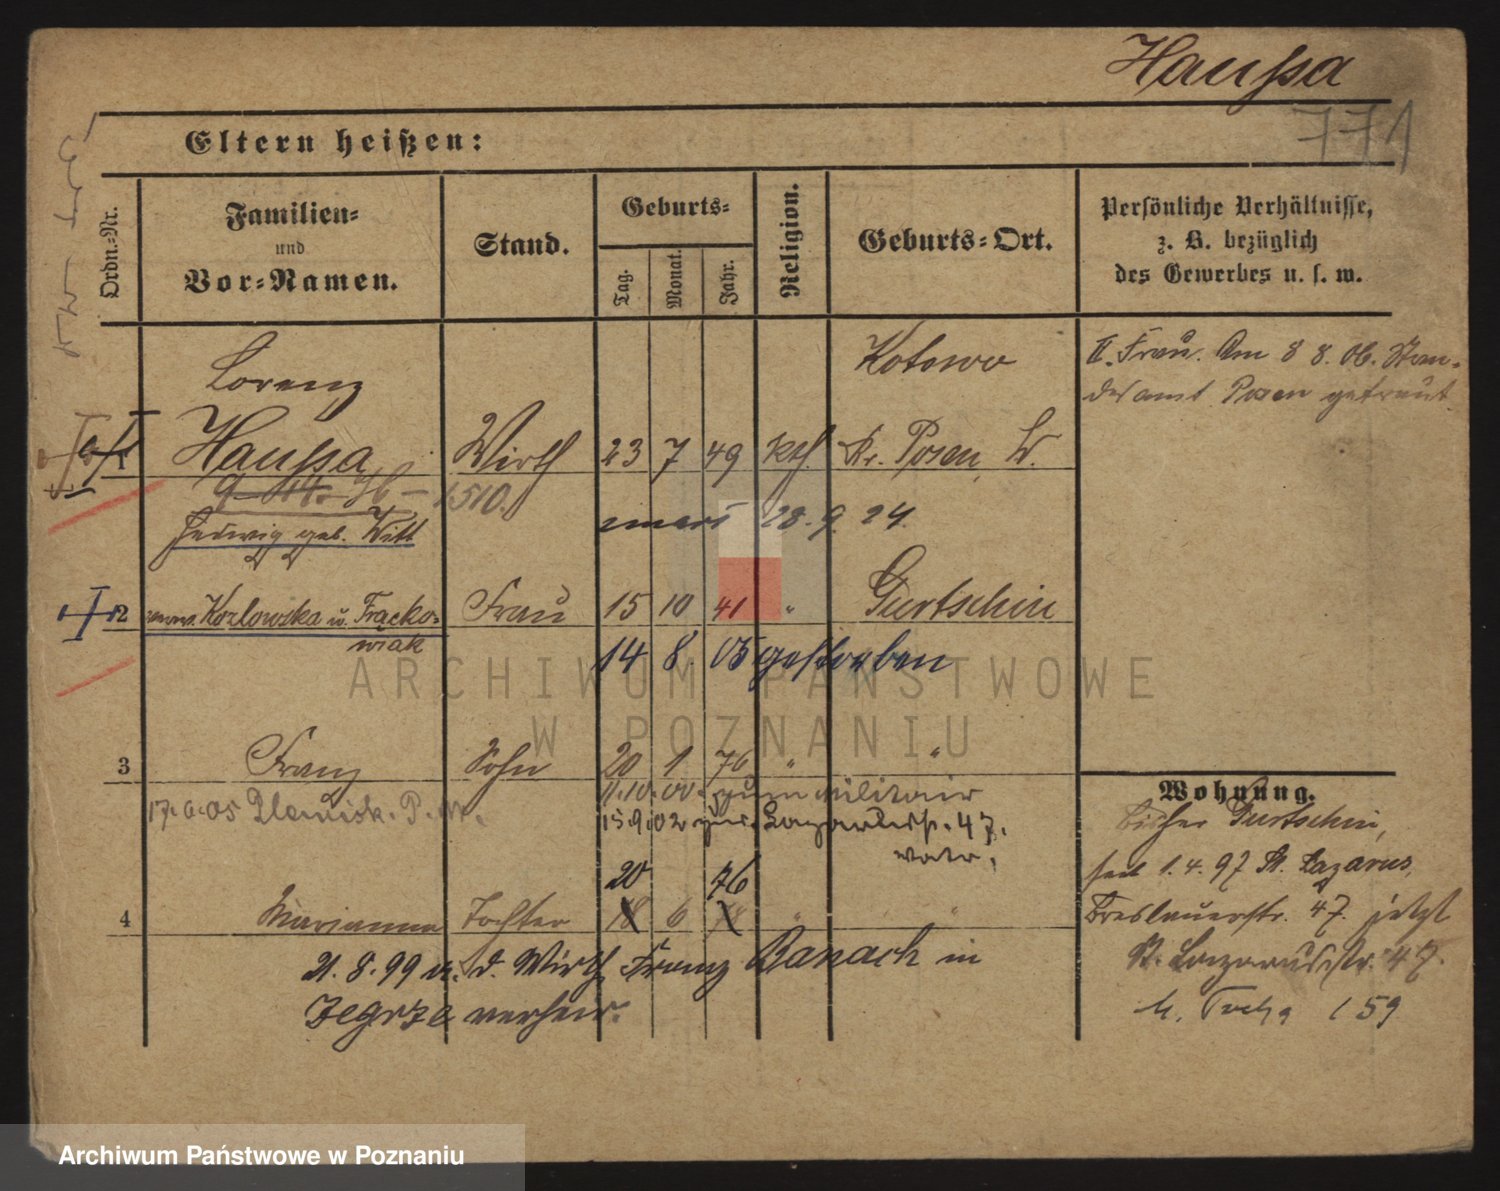 Haußa
771
Eltern heißen:
Ordn.-Nr.
Familien-
und
Vor-Namen.
Stand.
Geburts-
Tag.
Monat.
Jahr.
Religion.
Geburts-Ort.
Persönliche Verhältnisse,
z. B. bezüglich
des Gewerbes u. s. w.
Lorenz Kotowo
II. Frau. Am 8 8. 06. Stan-
desamt Posen getraut.
1 Haußa Wirth 23 7 49 kth. Kr. Posen W.
1510.
Hedwig geb. Witt 28. 9. 24.
2 Kozlowska u. Frącko- Frau 15 10 41 " Gurtschin
wiak
14 8. 05 gestorben
3 Franz Sohn 20 1 76 " "
17.6.05 P. W. 11.10.00. zum Militair
15.9.02 zur. Lazarusstr. 47.
20 76
4 Marianna Tochter 18 6 78 " "
21.8.99 m. d. Wirth Franz Banach in
Zegrze verheir.
Wohnung.
bisher Gurtschin,
seit 1.4.97 St. Lazarus,
Breslauerstr. 47. jetzt
St. Lazarusstr. 47.
159
ARCHIWUM PAŃSTWOWE
W POZNANIU
Archiwum Państwowe w Poznaniu